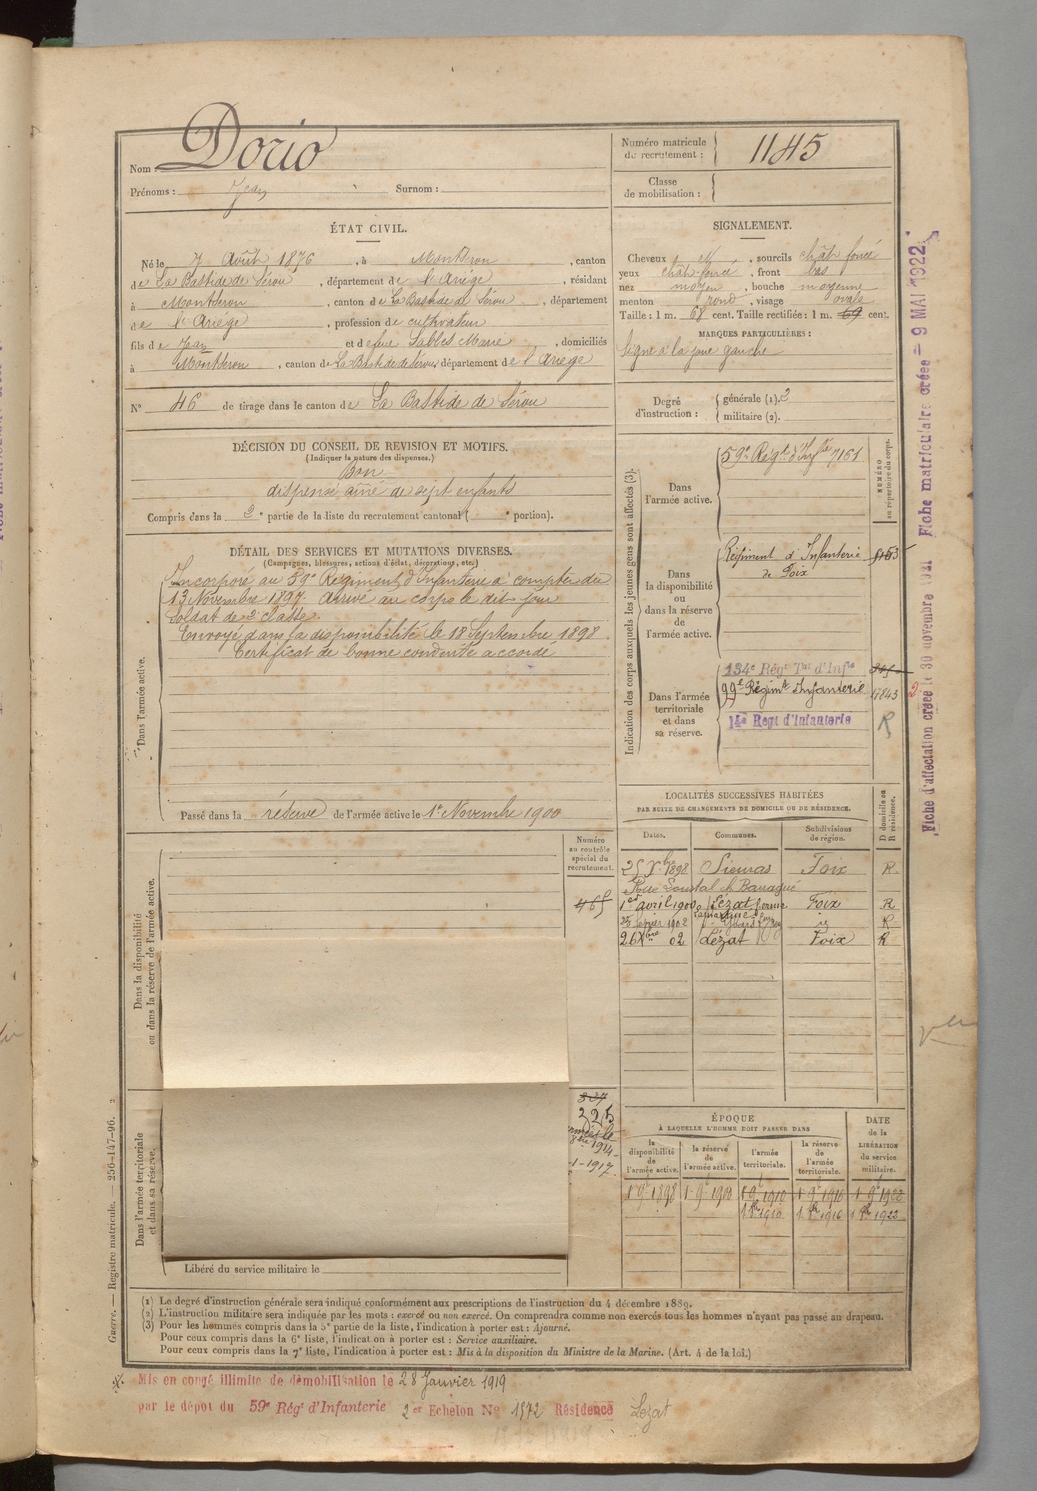 Nom : Dorio
Prénoms : Jean Surnom :
Numéro matricule du recrutement : 1145
Classe de mobilisation :
ÉTAT CIVIL.
Né le 7 Août 1876, à Montseron, canton
de La Bastide de Sérou, département de l'Ariége, résidant
à Montseron, canton de La Bastide de Sérou, département
de l'Ariége, profession de cultivateur
fils de Jean et de feue Sablés Marie, domiciliés
à Montseron, canton de La Bastide de Sérou, département de l'Ariége
N° 46 de tirage dans le canton de La Bastide de Sérou
SIGNALEMENT.
Cheveux , sourcils chât foncé
yeux chât foncé, front bas
nez moyen, bouche moyenne
menton rond, visage ovale
Taille : 1 m. 68 cent. Taille rectifiée : 1 m. 69 cent.
MARQUES PARTICULIÈRES :
Signe à la joue gauche
Degré d'instruction : générale (1). 3
militaire (2).
DÉCISION DU CONSEIL DE REVISION ET MOTIFS.
(Indiquer la nature des dispenses.)
Bon
dispensé aîné de sept enfants
Compris dans la 2e partie de la liste du recrutement cantonal ( portion).
DÉTAIL DES SERVICES ET MUTATIONS DIVERSES.
(Campagnes, blessures, actions d'éclat, décorations, etc.)
Dans l'armée active.
Incorporé au 59e Régiment d'Infanterie à compter du
13 Novembre 1897. Arrivé au corps le dit jour
Soldat de 2e classe.
Envoyé dans la disponibilité le 18 Septembre 1898.
Certificat de bonne conduite accordé
Passé dans la réserve de l'armée active le 1er Novembre 1900
Indication des corps auxquels les jeunes gens sont affectés (3).
NUMÉRO au répertoire du corps.
Dans l'armée active.
59e Régt d'Infie 7161
Dans la disponibilité ou dans la réserve de l'armée active.
Régiment d'Infanterie
de Foix
Dans l'armée territoriale et dans sa réserve.
134e Régt Tal d'Infie
99e Régimt Infanterie 17843
14e Regt d'Infanterie R
LOCALITÉS SUCCESSIVES HABITÉES
PAR SUITE DE CHANGEMENTS DE DOMICILE OU DE RÉSIDENCE.
Dates. Communes. Subdivisions de région. D domicile ou R résidence.
25 Xbre 1898 Sieuras Foix R
1er avril 1900 Lézat ferme Foix R
1902 id R
26 Xbre 02 Lézat Foix R
Numéro au contrôle spécial du recrutement.
465
Dans la disponibilité ou dans la réserve de l'armée active.
Dans l'armée territoriale et dans sa réserve.
325
1914
-1-1917
Libéré du service militaire le
ÉPOQUE
À LAQUELLE L'HOMME DOIT PASSER DANS
la disponibilité de l'armée active.
la réserve de l'armée active.
l'armée territoriale.
la réserve de l'armée territoriale.
DATE de la LIBÉRATION du service militaire.
1 9e 1898 1 9e 1900 1 9e 1910 1 9e 1916 1 9e 1922
(1) Le degré d'instruction générale sera indiqué conformément aux prescriptions de l'instruction du 4 décembre 1889.
(2) L'instruction militaire sera indiquée par les mots : exercé ou non exercé. On comprendra comme non exercés tous les hommes n'ayant pas passé au drapeau.
(3) Pour les hommes compris dans la 5e partie de la liste, l'indication à porter est : Ajourné.
Pour ceux compris dans la 6e liste, l'indication à porter est : Service auxiliaire.
Pour ceux compris dans la 7e liste, l'indication à porter est : Mis à la disposition du Ministre de la Marine. (Art. 4 de la loi.)
Guerre. — Registre matricule. — 256-147-96. 2
Mis en congé illimité de démobilisation le 28 Janvier 1919
par le dépôt du 59e Régt d'Infanterie 2er Echelon N° 1572 Résidence Lezat
Fiche d'affectation créée le 30 novembre 1921 Fiche matriculaire créée = 9 MAI 1922